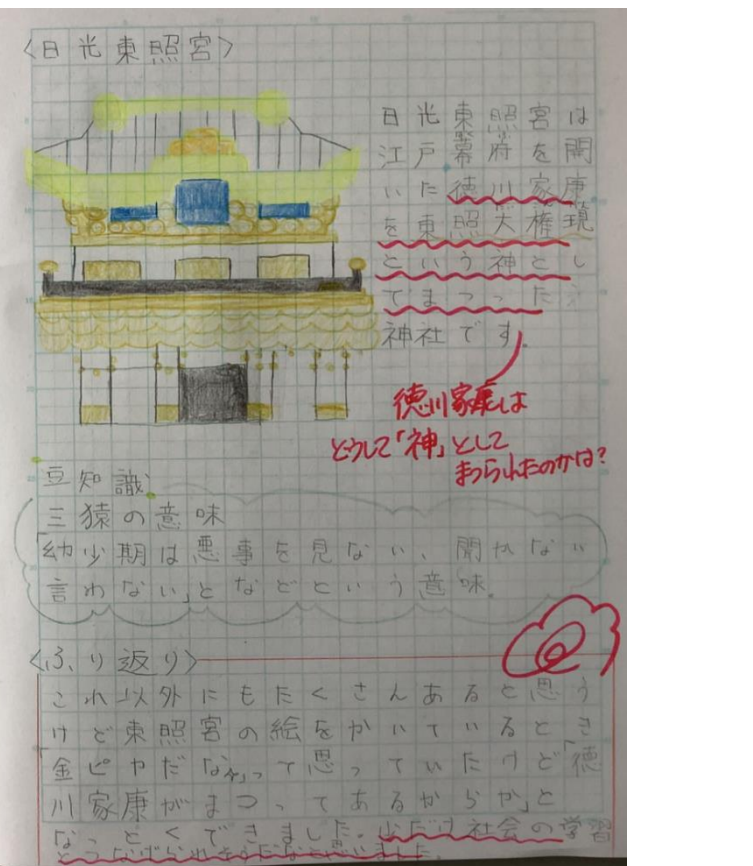 〈日光東照宮〉
日光東照宮は
江戸幕府を開
いた徳川家康
を東照大権現
という神とし
てまつった
神社です。
徳川家康は
どうして「神」として
まつられたのかは?
豆知識
三猿の意味
「幼少期は悪事を見ない、聞かない
言わない」となどという意味。
〈ふり返り〉
これ以外にもたくさんあると思う
けど東照宮の絵をかいているとき
「金ピヤだなぁ」って思っていたけど「徳
川家康がまつってあるからか」と
なっとくできました。 社会の学習